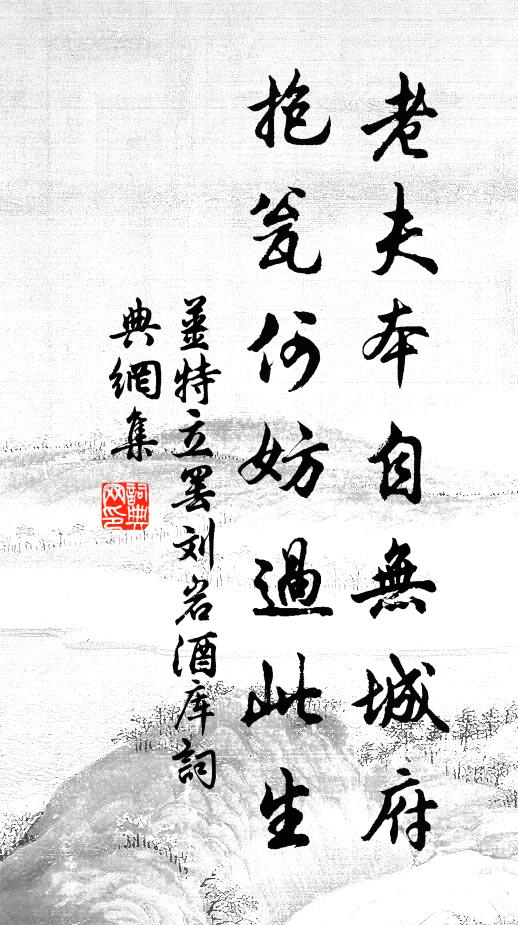 老夫本自無城府
抱瓮何妨過此生
姜特立罢刘岩酒库詞
典網集
詞典
网印